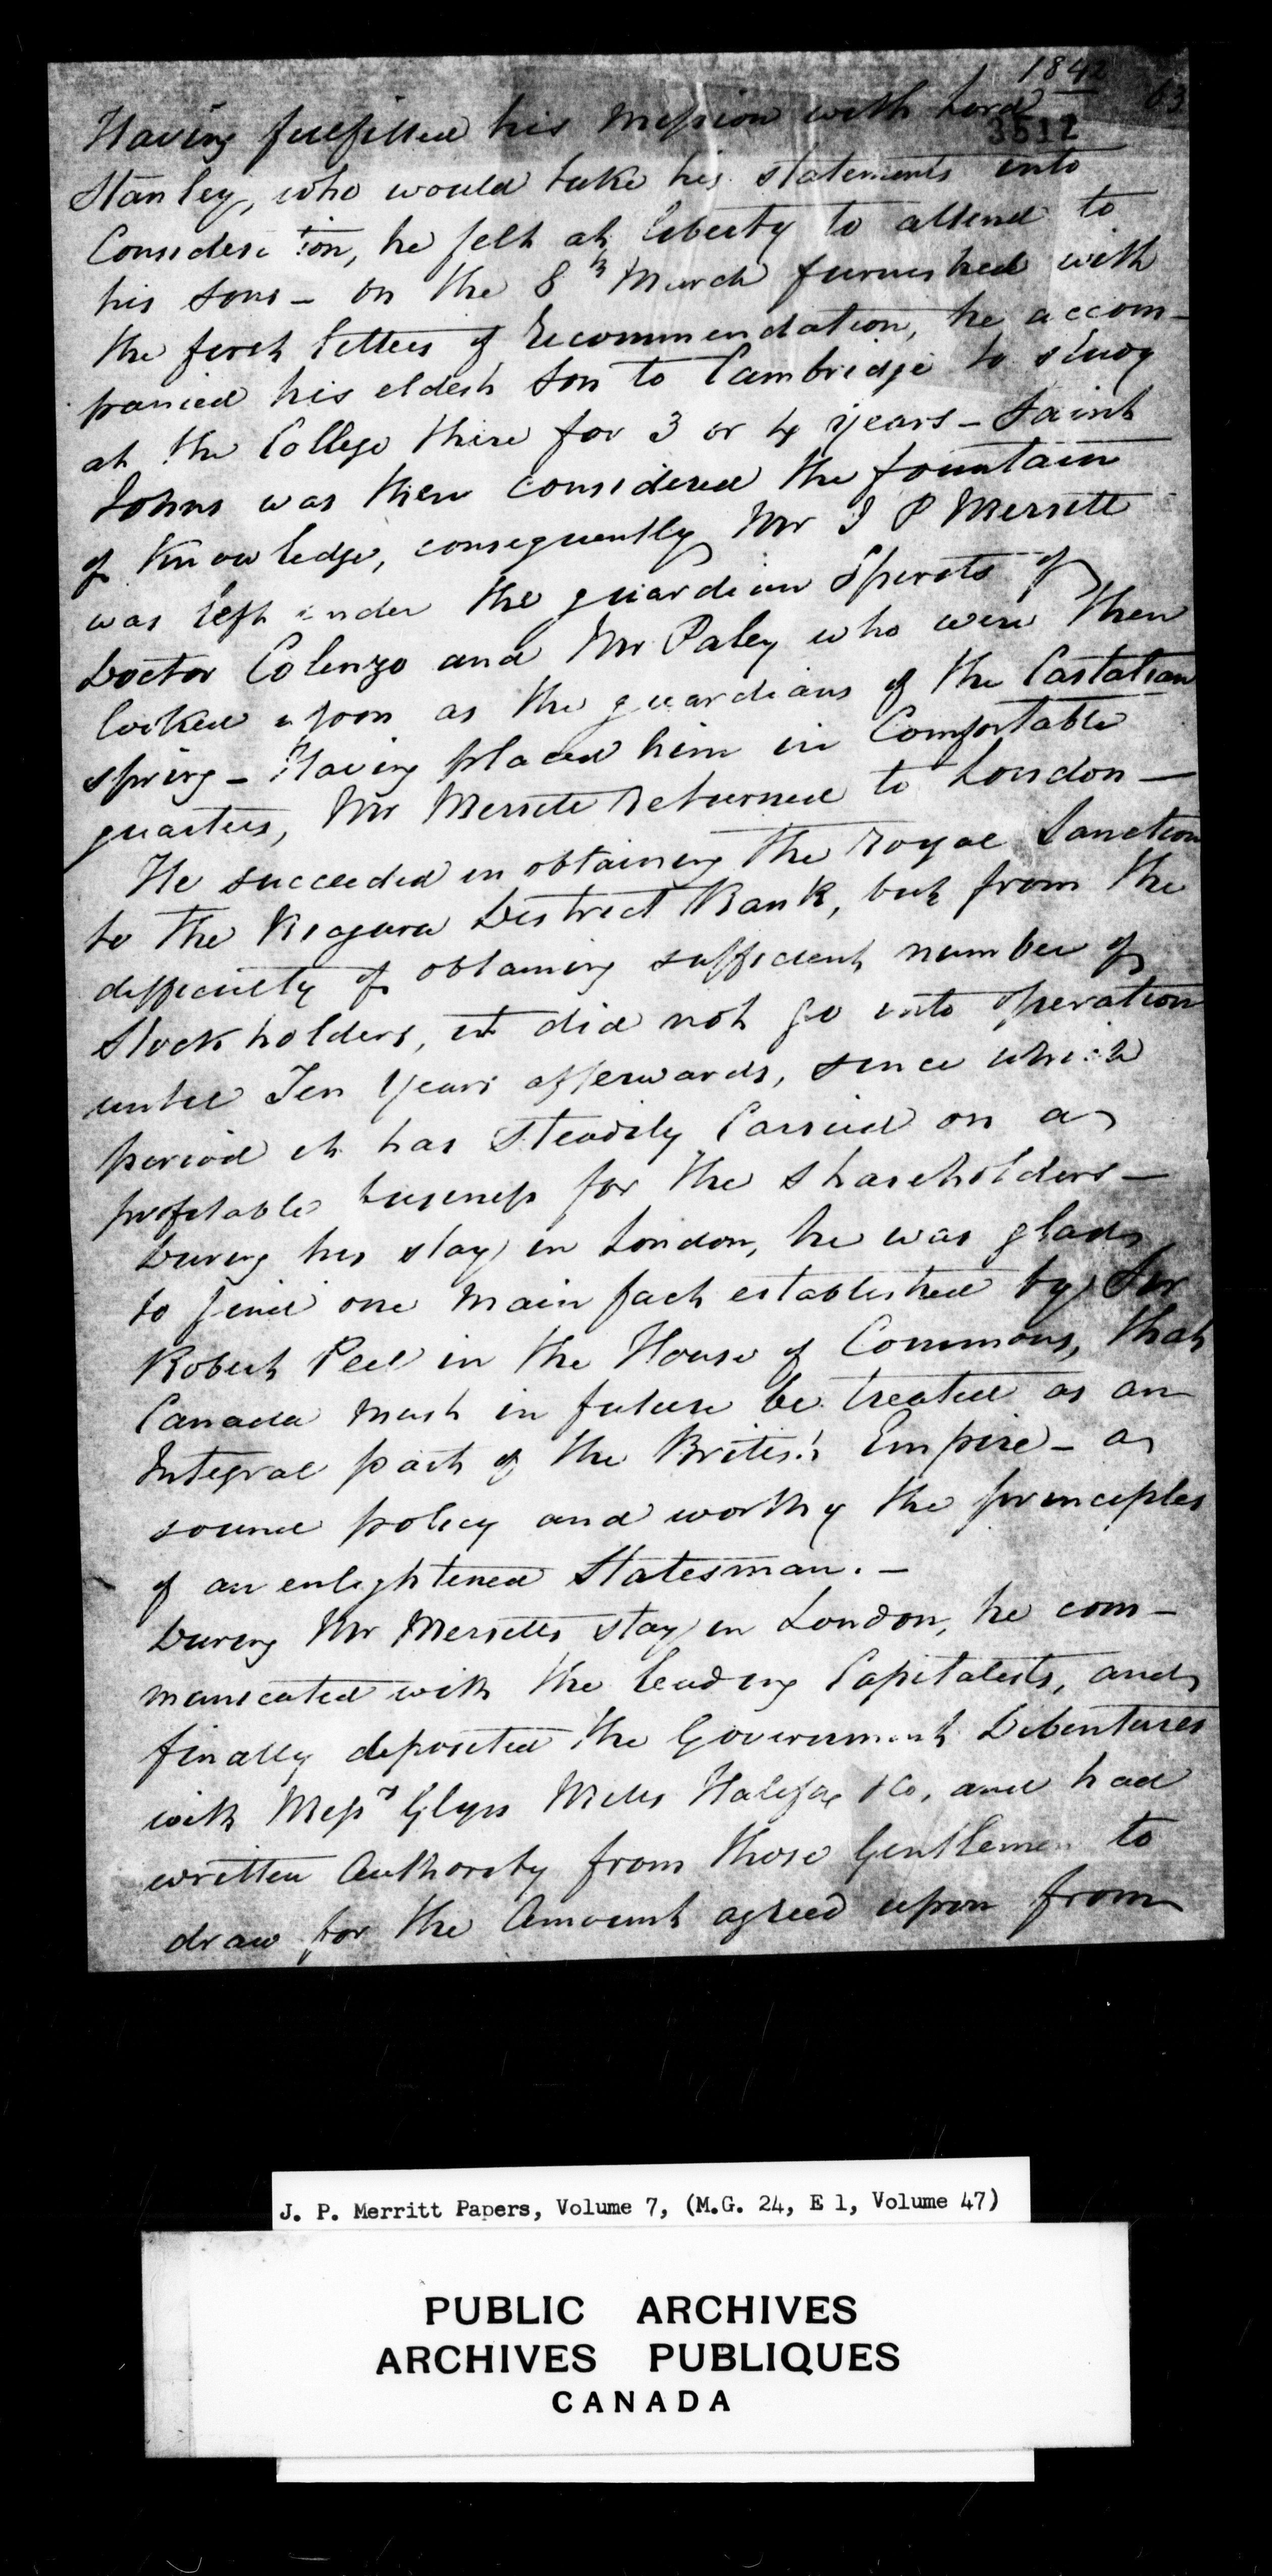 1842
63
3512
Having fulfilled his Mission with Lord
Stanley, who would take his statements into
Consideration, he felt at liberty to attend to
his sons - On the 8th March furnished with
the first letters of Recommendation, he accom-
panied his eldest son to Cambridge to study
at the College there for 3 or 4 years - Saint
Johns was then considered the fountain
of Knowledge, consequently Mr J P Merritt
was left under the guardian Spirits of
Doctor Colenzo and Mr Paley who were then
looked upon as the guardians of the Castalian
spring - Having placed him in Comfortable
quarters, Mr Merritt Returned to London -
He succeeded in obtaining the Royal Sanction
to the Niagara District Bank, but from the
difficulty of obtaining sufficient number of
Stockholders, it did not go into operation
until Ten Years afterwards, since which
period it has Steadily Carried on a
profitable business for the shareholders -
During his stay in London, he was glad
to find one main fact established by Sir
Robert Peel in the House of Commons, that
Canada must in future be treated as an
Integral part of the British Empire - a
sound policy and worthy the principles
of an enlightened Statesman. -
During Mr Merritts stay in London, he com-
municated with the leading Capitalists, and
finally deposited the Government Debentures
with Messrs Glyn Mills Halifax & Co, and had
written Authority from those Gentlemen to
draw for the Amount agreed upon from
J. P. Merritt Papers, Volume 7, (M.G. 24, E 1, Volume 47)
PUBLIC ARCHIVES
ARCHIVES PUBLIQUES
CANADA